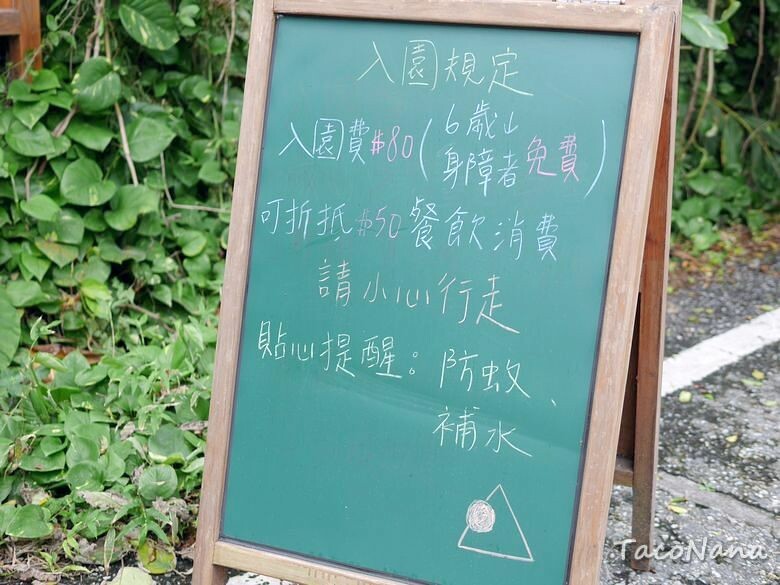 入園規定
入園費#80(6歲以下
身障者免費)
可折抵#50餐飲消費
請小心行走
貼心提醒:防蚊、
補水
TacoNana